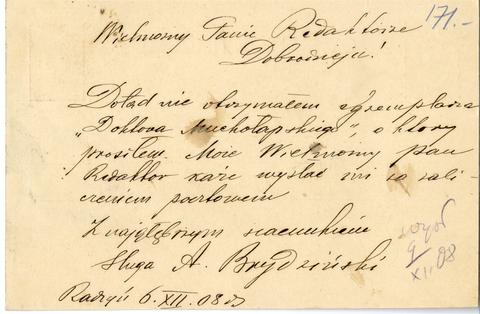 171.-
Wielmożny Panie Redaktorze
Dobrodzieju!
Dotąd nie otrzymałem egzemplarza
„Doktora Muchołapskiego", o który
prosiłem. Może Wielmożny pan
Redaktor każe wysłać mi za zali-
czeniem pocztowem
Z najgłębszym szacunkiem
sługa A. Brydziński
Radzyń 6. XII. 08 r
9
XII. 08